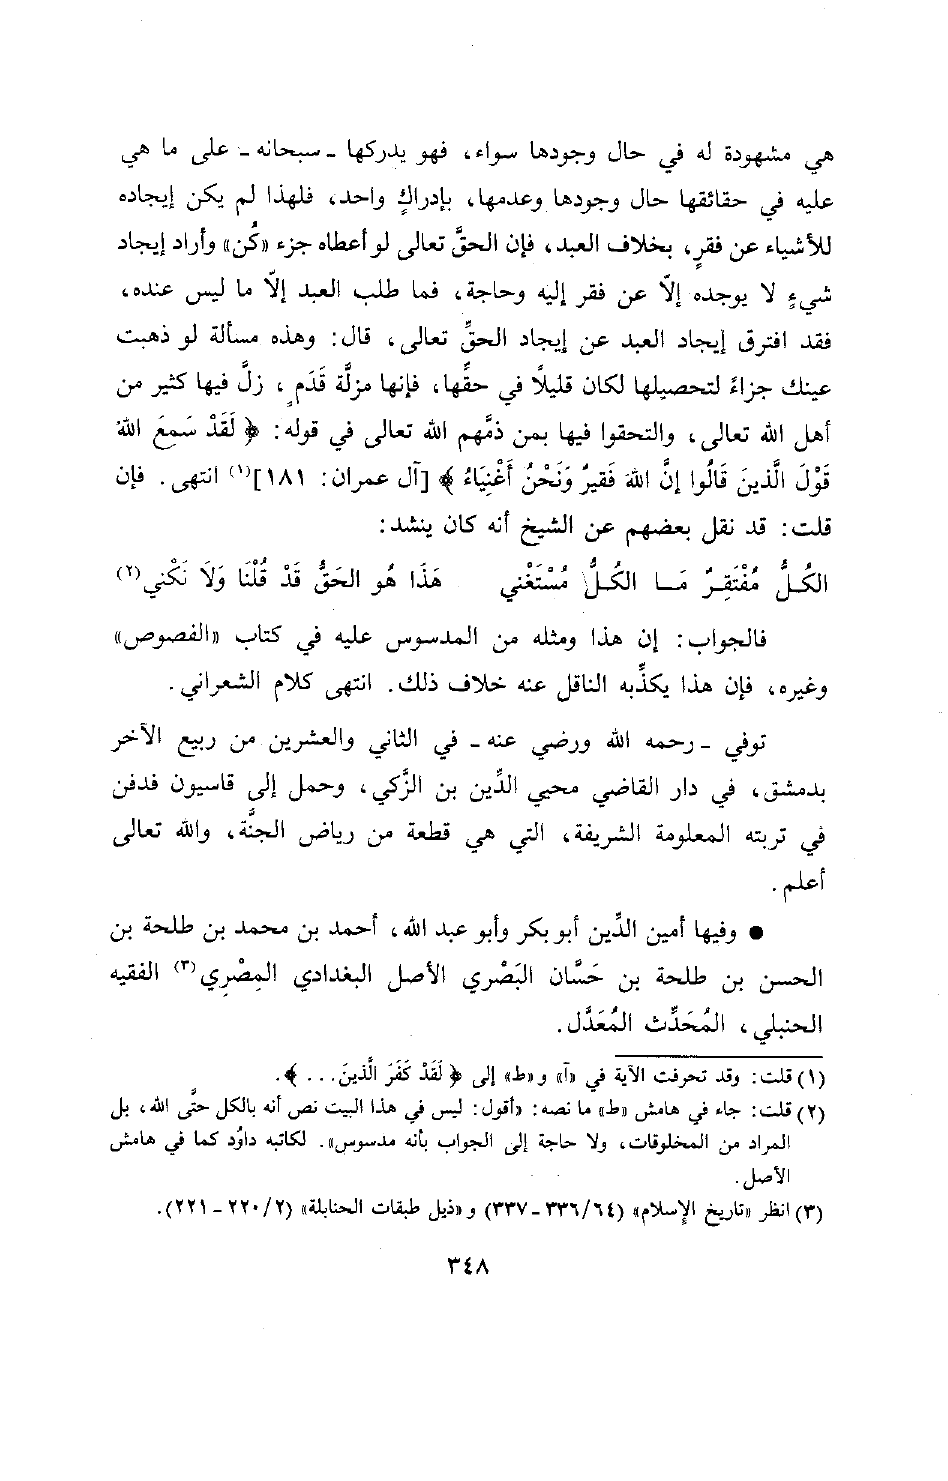 هي مشهودة له في حال وجودها سواء، فهو يدركها ـ سبحانه ـ على ما هي
عليه في حقائقها حال وجودها وعدمها، بإدراكٍ واحد، فلهذا لم يكن إيجاده
للأشياء عن فقرٍ، بخلاف العبد، فإن الحقَّ تعالى لو أعطاه جزء «كُن» وأراد إيجاد
شيءٍ لا يوجده إلاّ عن فقر إليه وحاجة، فما طلب العبد إلاّ ما ليس عنده،
فقد افترق إيجاد العبد عن إيجاد الحقِّ تعالى، قال: وهذه مسألة لو ذهبت
عينك جزاءً لتحصيلها لكان قليلاً في حقِّها، فإنها مزلَّة قَدَمٍ، زلَّ فيها كثير من
أهل الله تعالى، والتحقوا فيها بمن ذمَّهم الله تعالى في قوله: ﴿ لَقَدْ سَمِعَ اللّهُ
قَوْلَ الَّذينَ قَالُوا إنَّ اللّهَ فَقيرٌ وَنَحْنُ أَغْنِيَاءُ ﴾ [آل عمران: ١٨١](١) انتهى. فإن
قلت: قد نقل بعضهم عن الشيخ أنه كان ينشد:
الكُلُّ مُفْتَقِرٌ مَـا الكُلُّ مُسْتَغْني هَذَا هُو الحَقُّ قَدْ قُلْنَا وَلَا نَكْني(٢)
فالجواب: إن هذا ومثله من المدسوس عليه في كتاب «الفصوص»
وغيره، فإن هذا يكذِّبه الناقل عنه خلاف ذلك. انتهى كلام الشعراني.
توفي ـ رحمه الله ورضي عنه ـ في الثاني والعشرين من ربيع الآخر
بدمشق، في دار القاضي محيي الدِّين بن الزَّكي، وحمل إلى قاسيون فدفن
في تربته المعلومة الشريفة، التي هي قطعة من رياض الجنَّة، والله تعالى
أعلم.
● وفيها أمين الدِّين أبو بكر وأبو عبد الله، أحمد بن محمد بن طلحة بن
الحسن بن طلحة بن حَسَّان البَصْري الأصل البغدادي المِصْرِي(٣) الفقيه
الحنبلي، المُحَدِّث المُعَدَّل.
(١) قلت: وقد تحرفت الآية في «آ» و«ط» إلى ﴿ لَقَدْ كَفَرَ الَّذينَ... ﴾.
(٢) قلت: جاء في هامش «ط» ما نصه: «أقول: ليس في هذا البيت نص أنه بالكل حتَّى الله، بل
المراد من المخلوقات، ولا حاجة إلى الجواب بأنه مدسوس». لكاتبه داوُد كما في هامش
الأصل.
(٣) انظر «تاريخ الإسلام» (٦٤/ ٣٣٦ ـ ٣٣٧) و«ذيل طبقات الحنابلة» (٢/ ٢٢٠ ـ ٢٢١).
٣٤٨